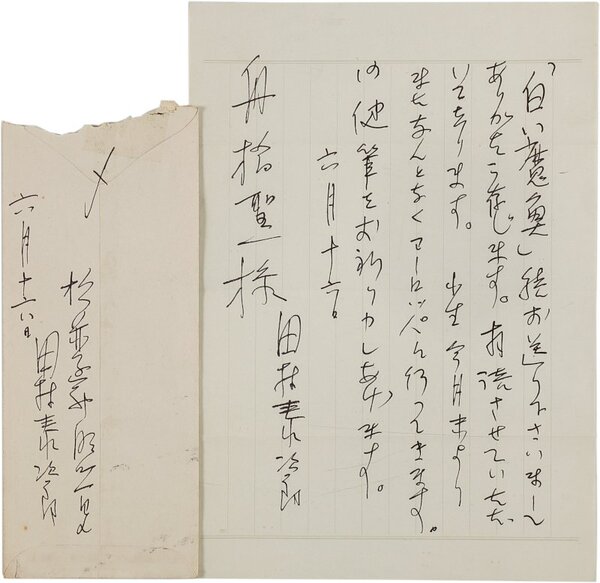 「白い魔魚」御お送り下さいまして
ありがたう存じます。拝読させていただ
いております。小生今月末より
またなんとなくヨーロッパへ行ってきます。
御健筆をお祈り申しあげます。
六月十六日
田村泰次郎
舟橋聖一様
〆
六月十六日
田村泰次郎